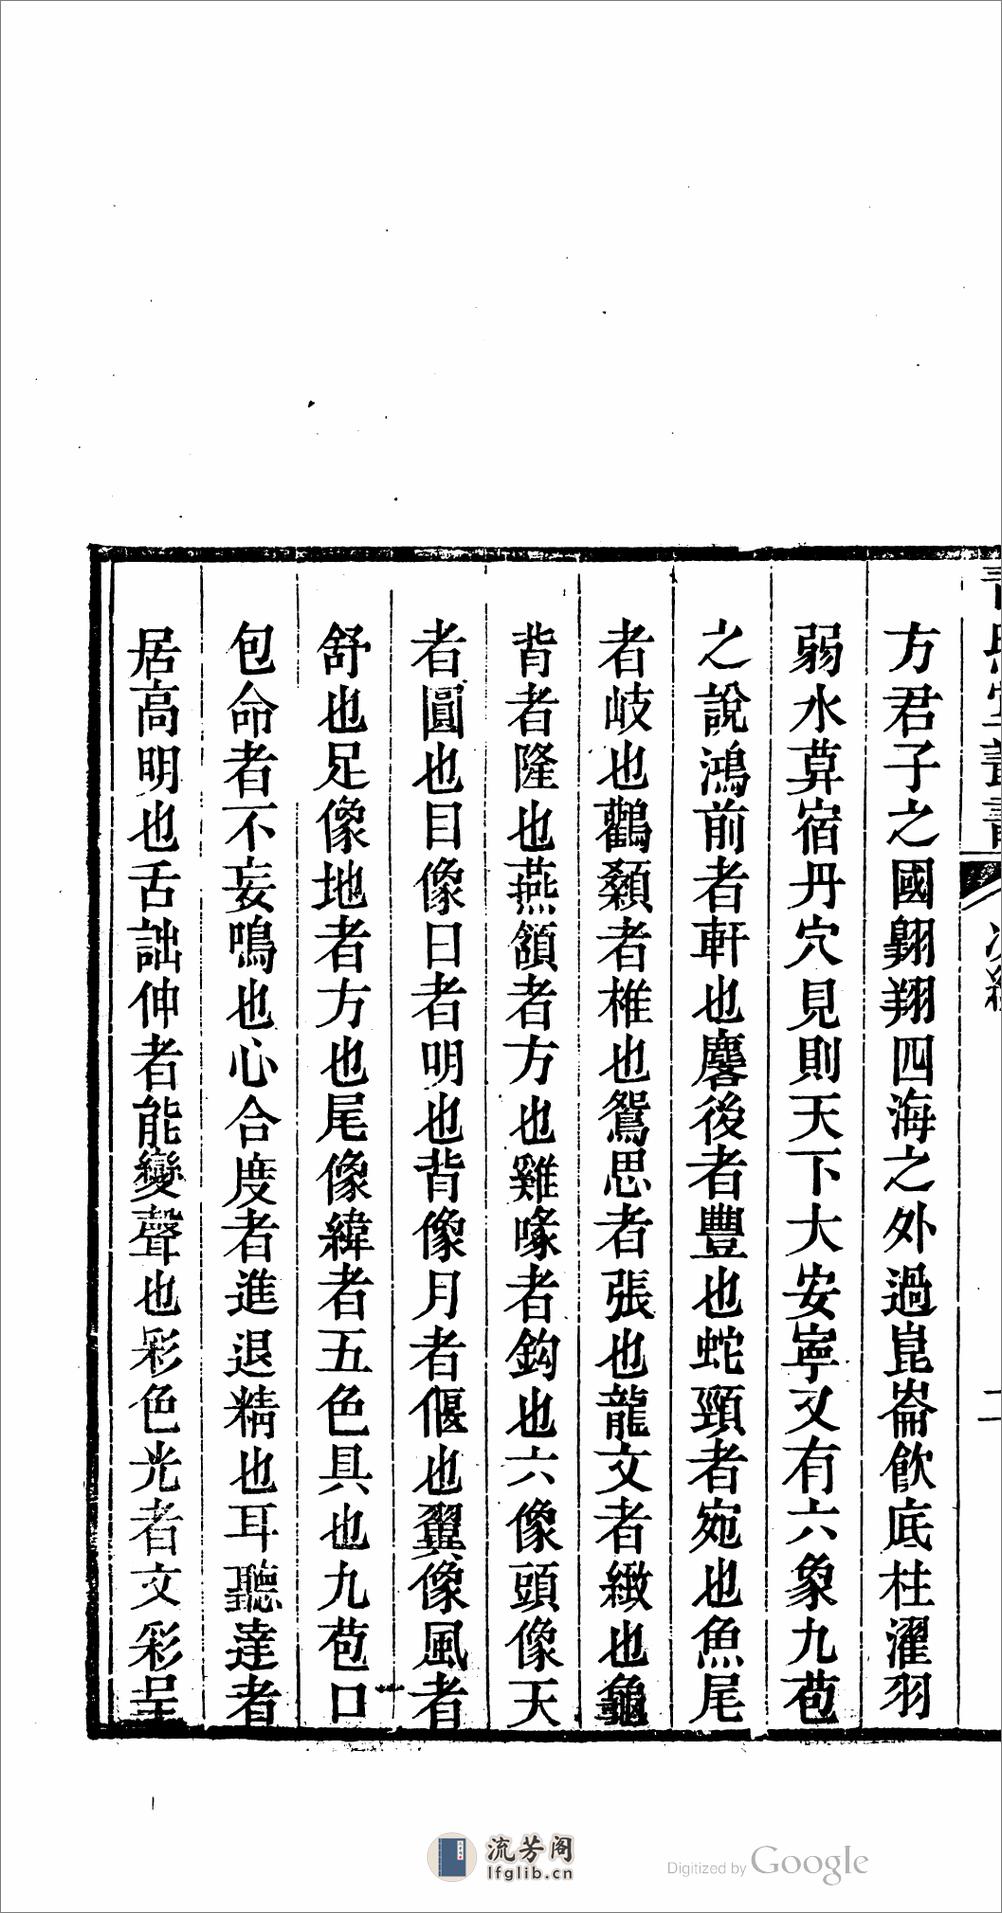 方君子之國翱翔四海之外過崑崙飲底柱濯羽
弱水莫宿丹穴見則天下大安寧又有六象九苞
之說鴻前者軒也麐後者豐也蛇頸者宛也魚尾
者岐也鸛顙者椎也鴛思者張也龍文者緻也龜
背者隆也燕頷者方也雞喙者鈎也六像頭像天
者圓也目像日者明也背像月者偃也翼像風者
舒也足像地者方也尾像緯者五色具也九苞口
包命者不妄鳴也心合度者進退精也耳聽達者
居高明也舌詘伸者能變聲也彩色光者文彩呈
流芳阁
lfglib.cn
Digitized by Google